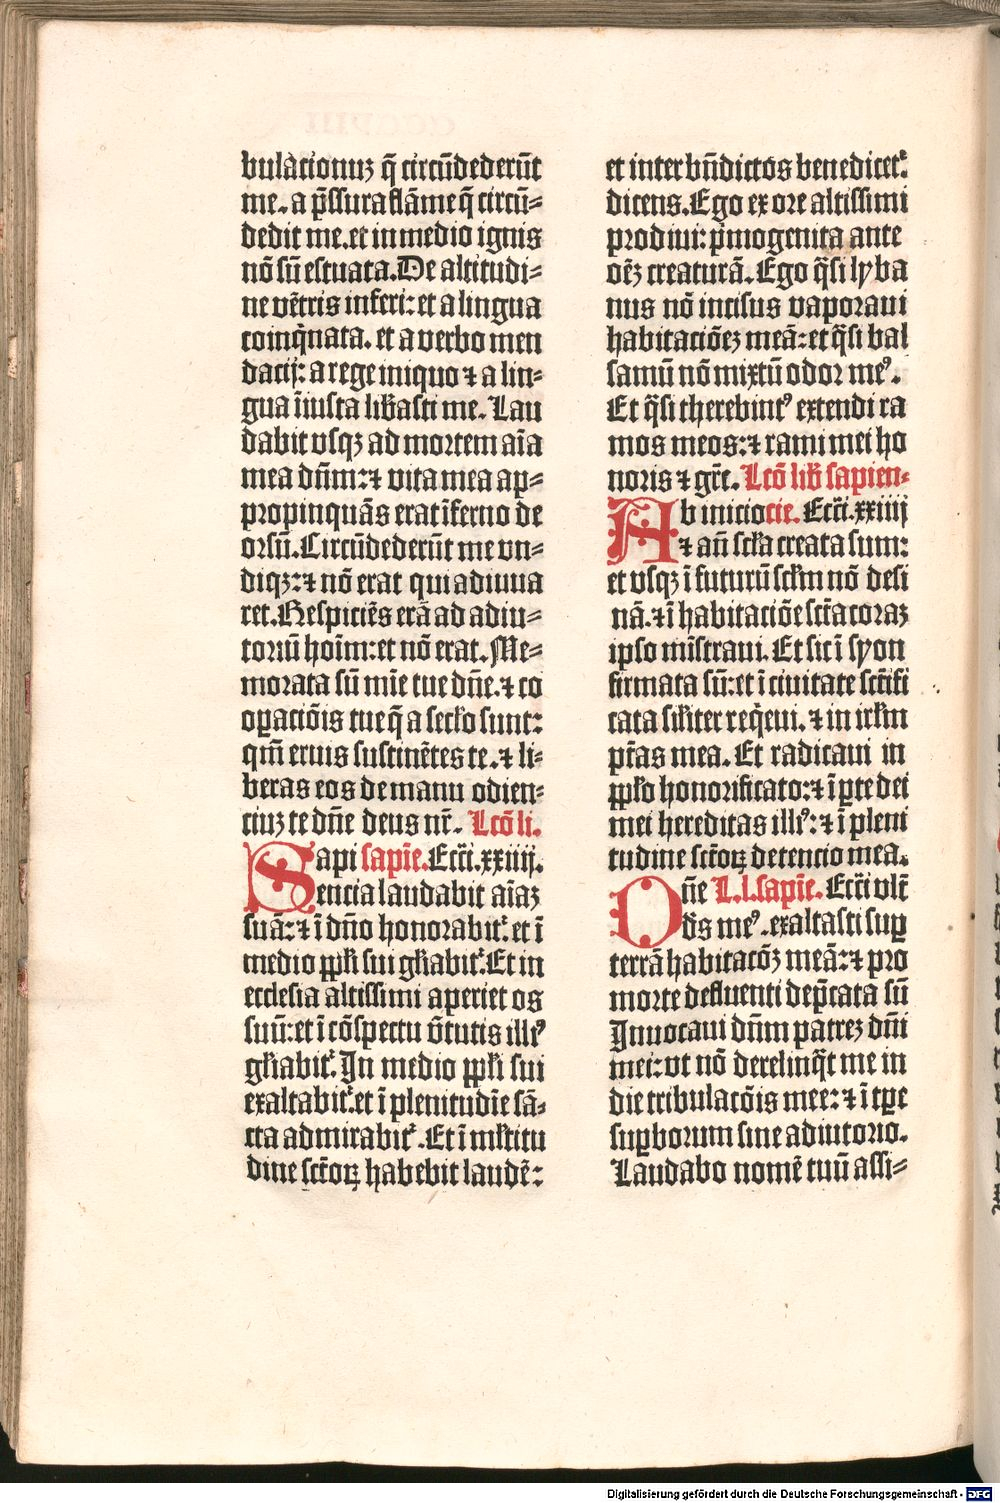 bulacionuʒ q̄ circūdederūt
me. a p̄ssura flāme q̄ circū⸗
dedit me. et in medio ignis
nō sū estuata. De altitudi⸗
ne vētris inferi: et a lingua
coinq̄nata. et a verbo men
dacij: a rege iniquo ⁊ a lin⸗
gua īiusta lib̄asti me. Lau
dabit vsqʒ ad mortem aīa
mea dn̄m: ⁊ vita mea ap⸗
propinquās erat īferno de
orsū. Circūdederūt me vn⸗
diqʒ: ⁊ nō erat qui adiuua
ret. Respiciēs erā ad adiu⸗
toriū hoīm: et nō erat. Me⸗
morata sū mīe tue dn̄e. ⁊ co
oꝑaciōis tue q̄ a sec̄lo sunt:
qm̄ eruis sustinētes te. ⁊ li⸗
beras eos de manu odien⸗
ciuʒ te dn̄e deus nr̄. Lcō li.
Sapi sapīe. Ecc̄i. xxiiij.
encia laudabit aīaʒ
suā: ⁊ ī dn̄o honorabit᷑. et ī
medio ppl̄i sui gl̄iabit᷑. Et in
ecclesia altissimi aperiet os
suū: et ī cōspectu v̄tutis illiꝰ
gl̄iabit᷑. In medio ppl̄i sui
exaltabit᷑. et ī plenitudīe sā⸗
cta admirabit᷑. Et ī ml̄titu
dine sct̄oꝝ habebit laudē:
et inter bn̄dictos benedicet᷑.
dicens. Ego ex ore altissimi
prodiui: p̄mogenita ante
oēʒ creaturā. Ego q̄si lyba
nus nō incisus vaporaui
habitaciōeʒ meā: et q̄si bal
samū nō mixtū odor meꝰ.
Et q̄si therebintꝰ extendi ra
mos meos: ⁊ rami mei ho
noris ⁊ gr̄e. Lcō lib̄ sapien⸗
Ab inicio cie. Ecc̄i. xxiiij
⁊ an̄ sc̄la creata sum:
et vsqʒ ī futurū sc̄lm nō desi
nā. ⁊ ī habitaciōe sct̄a coraʒ
ipso mīstraui. Et sic ī syon
firmata sū: et ī ciuitate sct̄ifi
cata sil̄iter req̄eui. ⁊ in irl̄m
pt̄as mea. Et radicaui in
ppl̄o honorificato: ⁊ ī ꝑte dei
mei hereditas illiꝰ: ⁊ ī pleni
tudine sct̄oꝝ detencio mea.
Dn̄e L. l. sapīe. Ecc̄i vlt̄
ds̄ meꝰ. exaltasti suꝑ
terrā habitacōʒ meā: ⁊ pro
morte defluenti dep̄cata sū
Inuocaui dn̄m patreʒ dn̄i
mei: vt nō derelinq̄t me in
die tribulacōis mee: ⁊ ī tꝑe
suꝑborum sine adiutorio.
Laudabo nomē tuū assi⸗
Digitalisierung gefördert durch die Deutsche Forschungsgemeinschaft - DFG